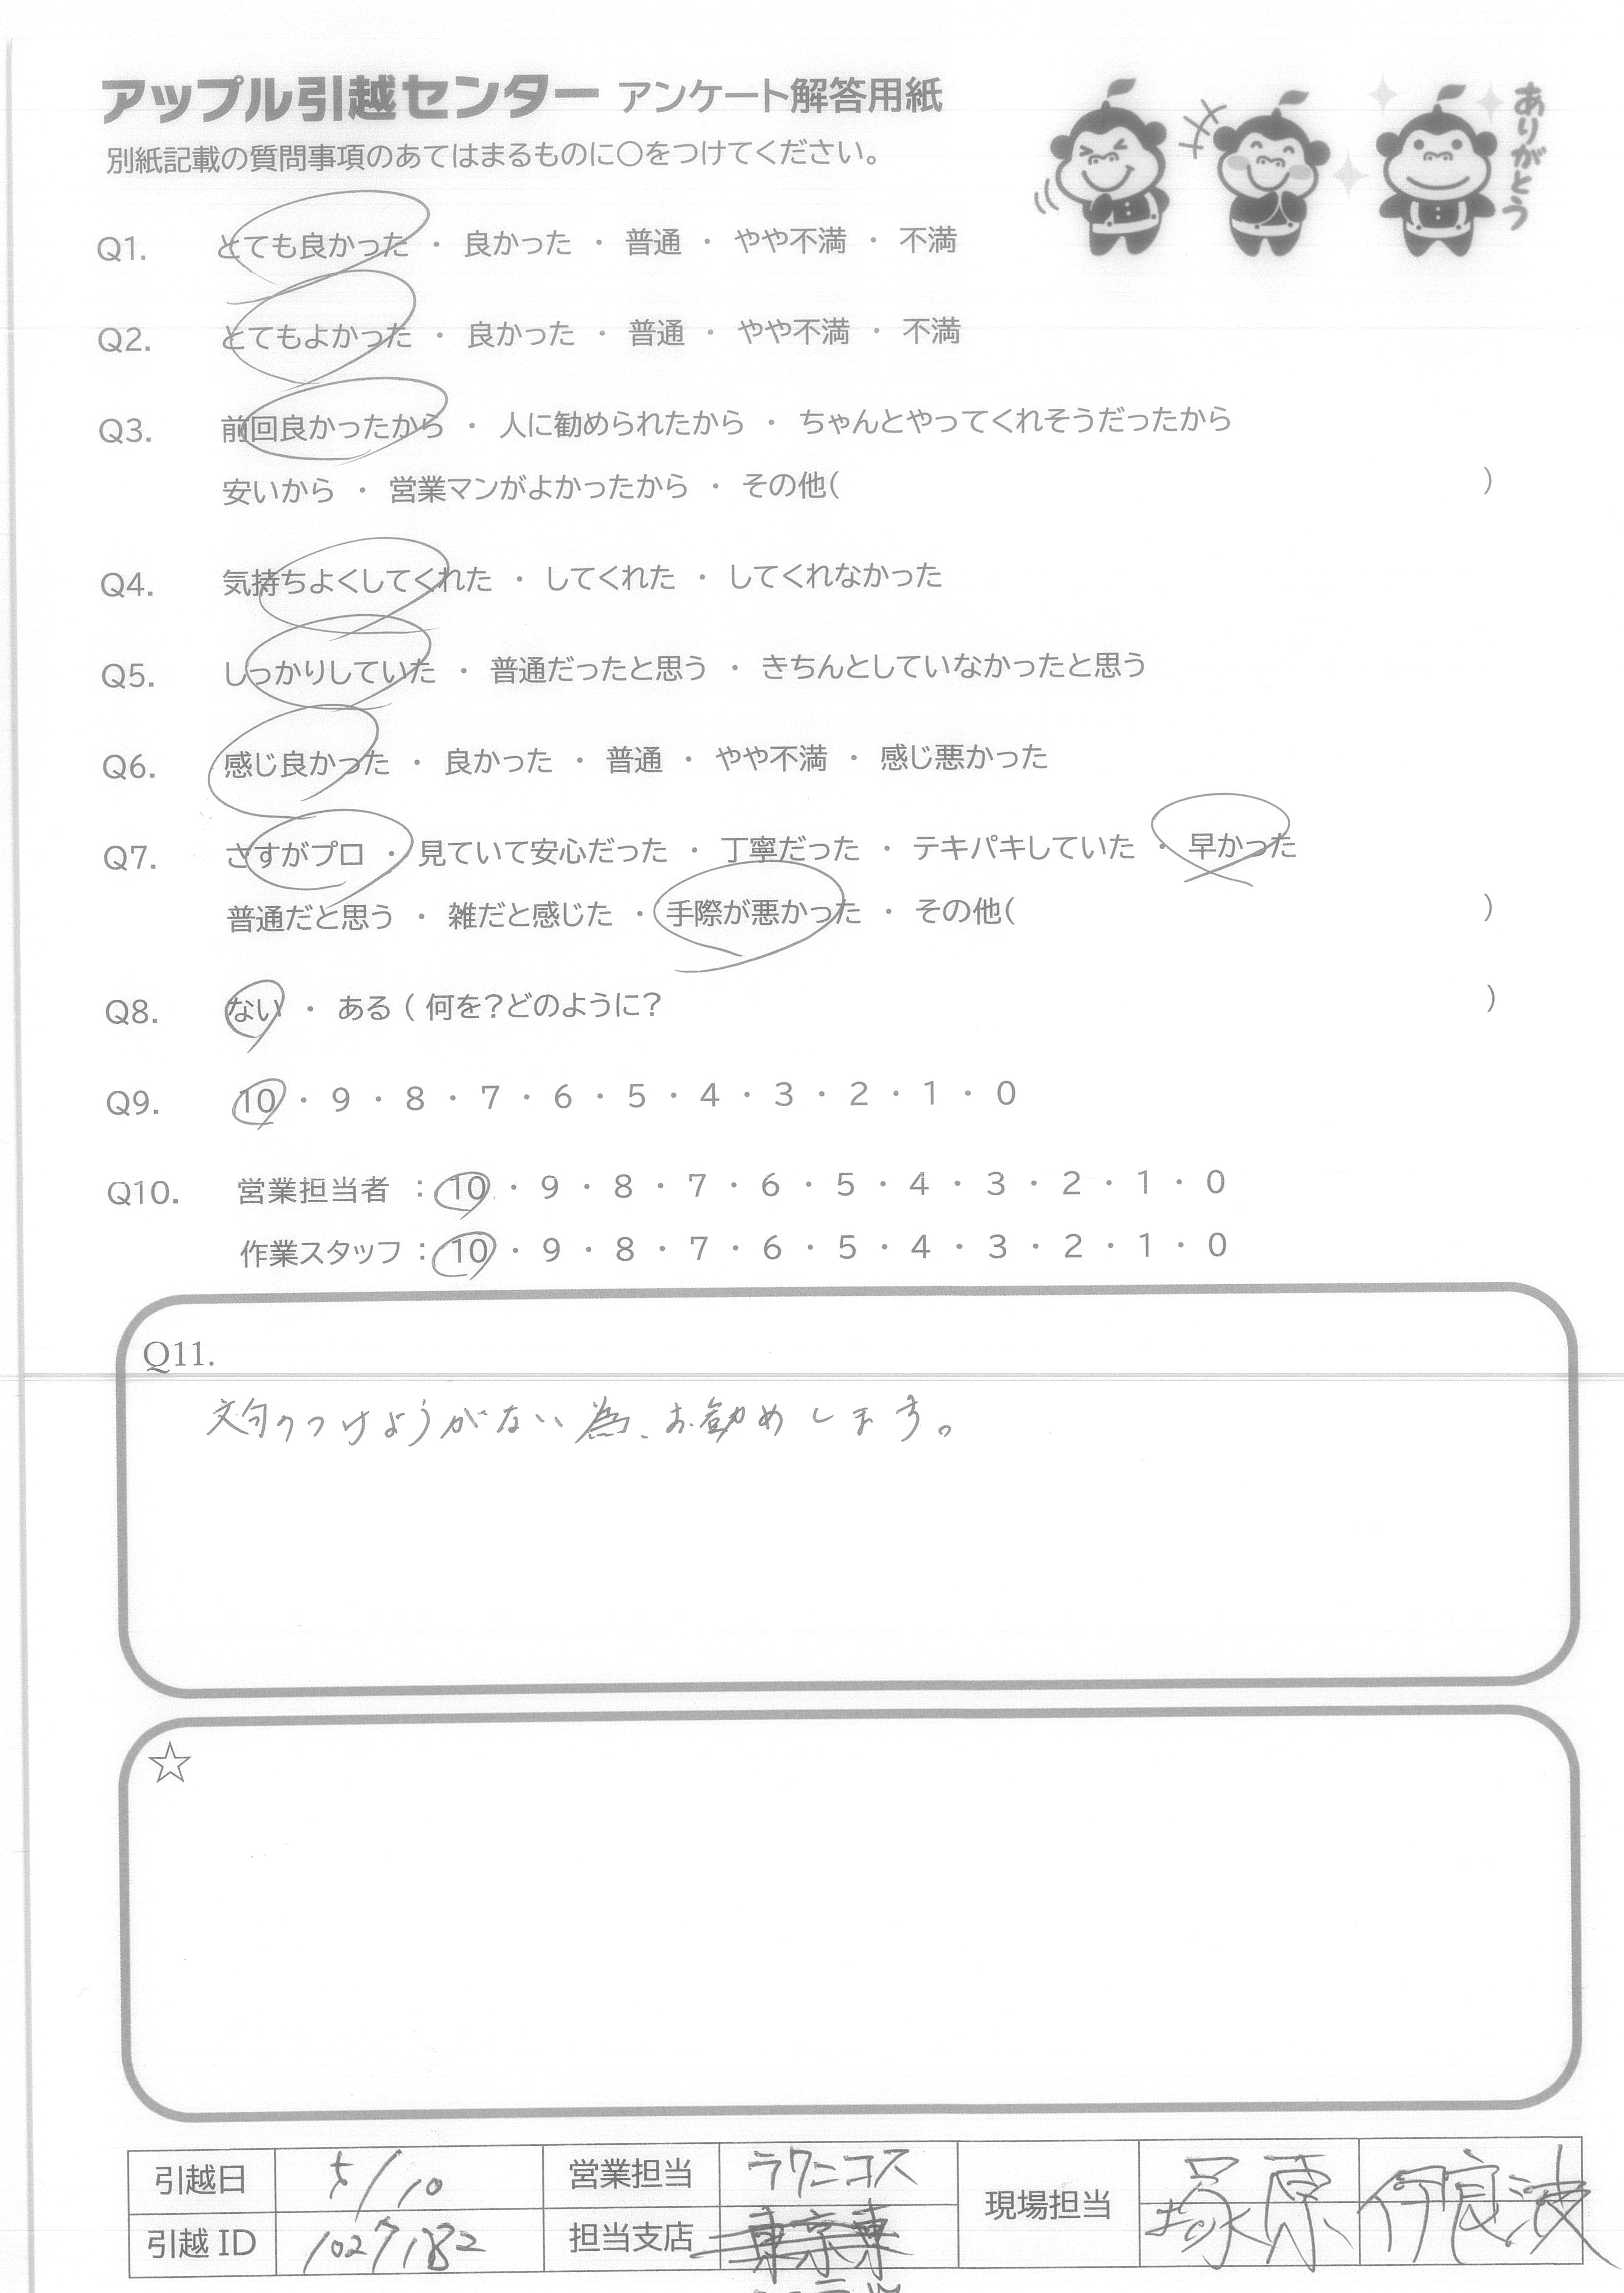 アップル引越センター アンケート解答用紙
別紙記載の質問事項のあてはまるものに○をつけてください。
ありがとう
Q1. とても良かった ・ 良かった ・ 普通 ・ やや不満 ・ 不満
Q2. とてもよかった ・ 良かった ・ 普通 ・ やや不満 ・ 不満
Q3. 前回良かったから ・ 人に勧められたから ・ ちゃんとやってくれそうだったから
安いから ・ 営業マンがよかったから ・ その他( )
Q4. 気持ちよくしてくれた ・ してくれた ・ してくれなかった
Q5. しっかりしていた ・ 普通だったと思う ・ きちんとしていなかったと思う
Q6. 感じ良かった ・ 良かった ・ 普通 ・ やや不満 ・ 感じ悪かった
Q7. さすがプロ ・ 見ていて安心だった ・ 丁寧だった ・ テキパキしていた ・ 早かった
普通だと思う ・ 雑だと感じた ・ 手際が悪かった ・ その他( )
Q8. ない ・ ある ( 何を？どのように？ )
Q9. 10 ・ 9 ・ 8 ・ 7 ・ 6 ・ 5 ・ 4 ・ 3 ・ 2 ・ 1 ・ 0
Q10. 営業担当者 : 10 ・ 9 ・ 8 ・ 7 ・ 6 ・ 5 ・ 4 ・ 3 ・ 2 ・ 1 ・ 0
作業スタッフ : 10 ・ 9 ・ 8 ・ 7 ・ 6 ・ 5 ・ 4 ・ 3 ・ 2 ・ 1 ・ 0
Q11.
文句のつけようがない為、お勧めします。
☆
引越日 5/10 営業担当 ラクニコス 現場担当 塚原 伊良波
引越ID 1027182 担当支店 東京東